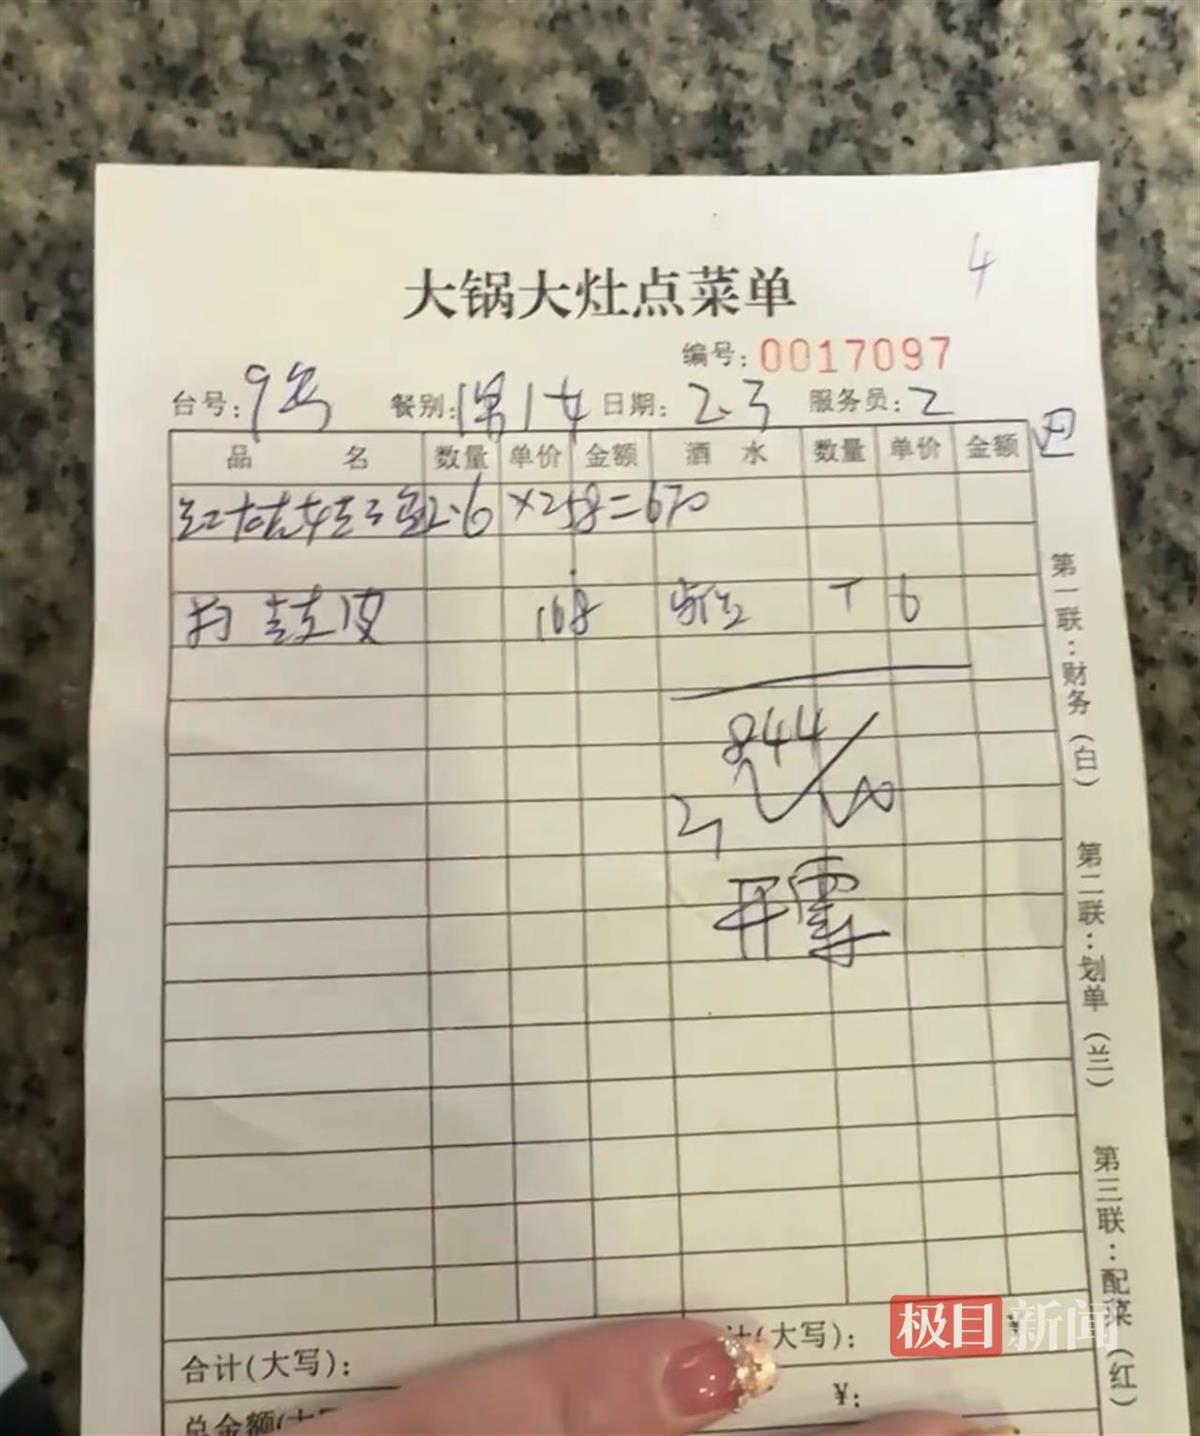 4
大锅大灶点菜单
编号: 0017097
台号: 9号 餐别: 日期: 2.3 服务员: 2
品 名 数量 单价 金额 酒 水 数量 单价 金额
2.6 ×258=670
皮 168 6
844
开
第一联:财务(白) 第二联:划单(兰) 第三联:配菜(红)
合计(大写): 计(大写):
总金额(大 ¥:
极目新闻